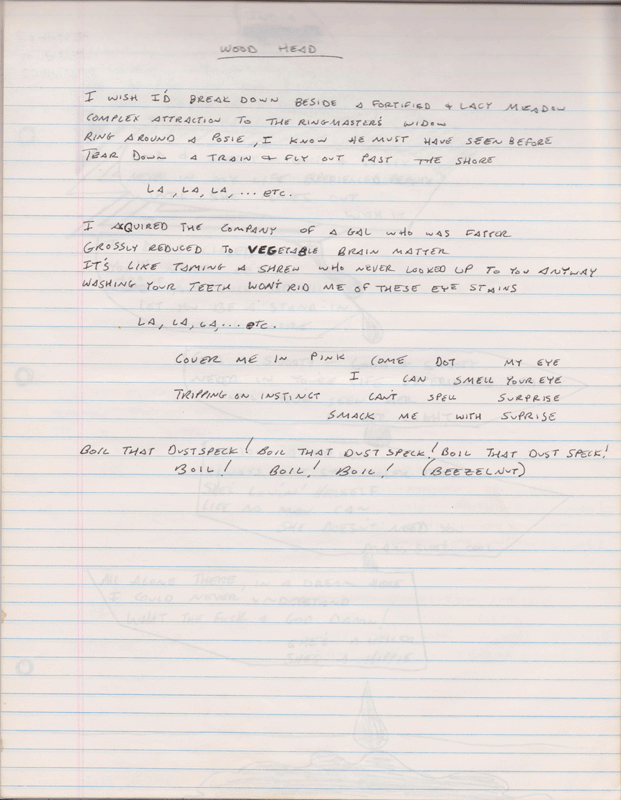 WOOD HEAD
I WISH I'D BREAK DOWN BESIDE A FORTIFIED & LACY MEADOW
COMPLEX ATTRACTION TO THE RINGMASTER'S WIDOW
RING AROUND A POSIE, I KNOW HE MUST HAVE SEEN BEFORE
TEAR DOWN A TRAIN & FLY OUT PAST THE SHORE
LA, LA, LA, ... ETC.
I AQUIRED THE COMPANY OF A GAL WHO WAS FATTER
GROSSLY REDUCED TO VEGETABLE BRAIN MATTER
IT'S LIKE TAMING A SHREW WHO NEVER LOOKED UP TO YOU ANYWAY
WASHING YOUR TEETH WON'T RID ME OF THESE EYE STAINS
LA, LA, LA, ... ETC.
COVER ME IN PINK COME DOT MY EYE
I CAN SMELL YOUR EYE
TRIPPING ON INSTINCT CAN'T SPELL SURPRISE
SMACK ME WITH SUPRISE
BOIL THAT DUSTSPECK! BOIL THAT DUST SPECK! BOIL THAT DUST SPECK!
BOIL! BOIL! BOIL! (BEEZELNUT)